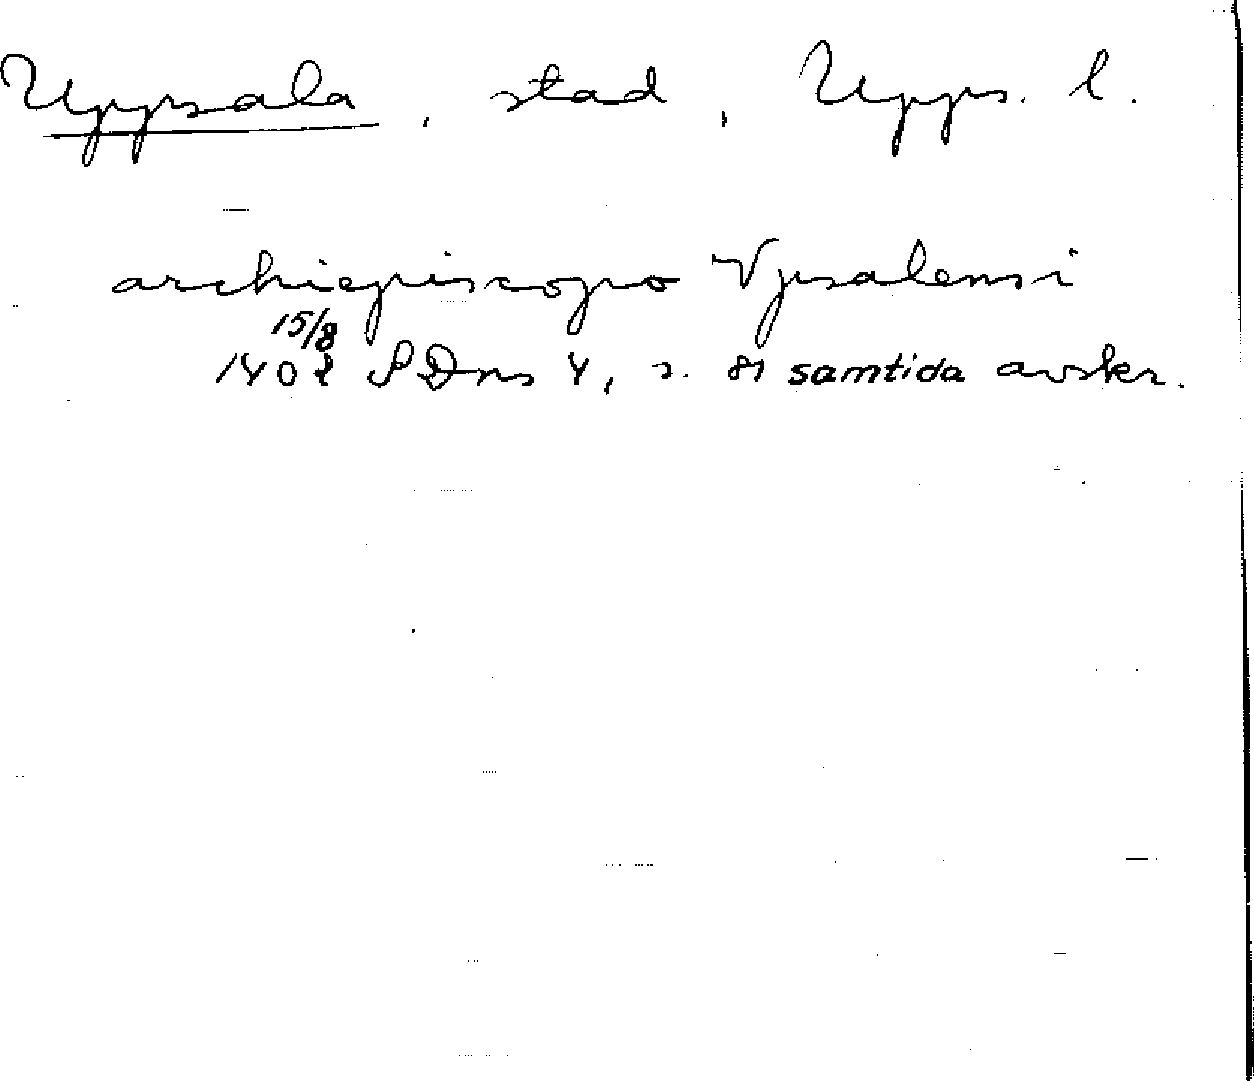 Uppsala, stad, Upps. l.
archiepiscopo Vpsalensi
15/8
SDns 4, s. 81 samtida avskr.